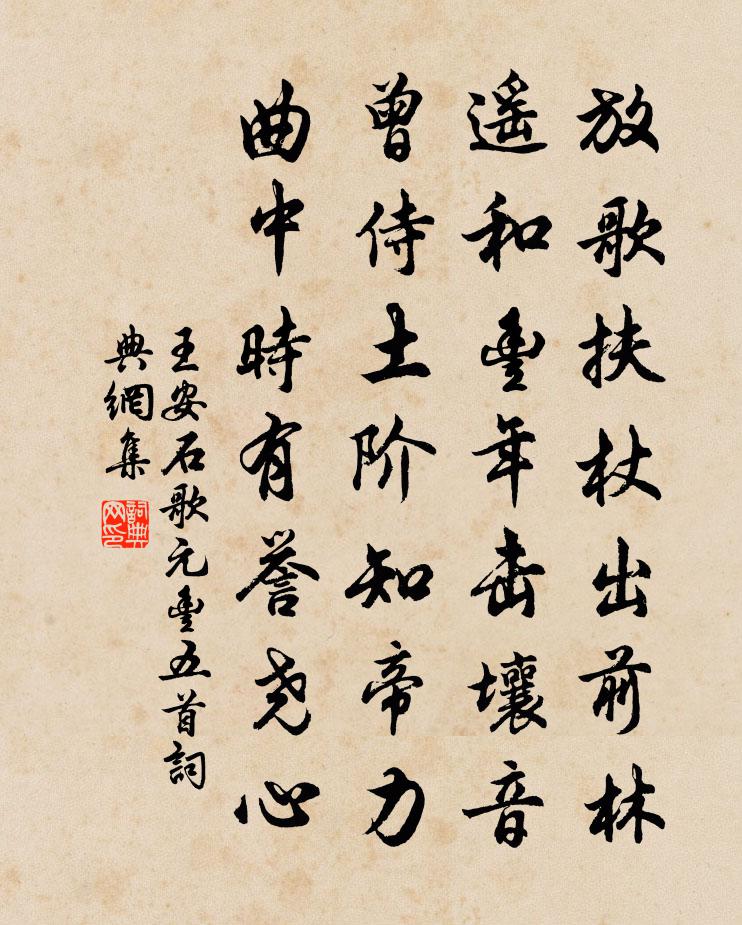 放歌扶杖出前林
遥和豊年击壤音
曾侍土阶知帝力
曲中時有誉尧心
王安石歌元豊五首詞
典網集
詞典
网印